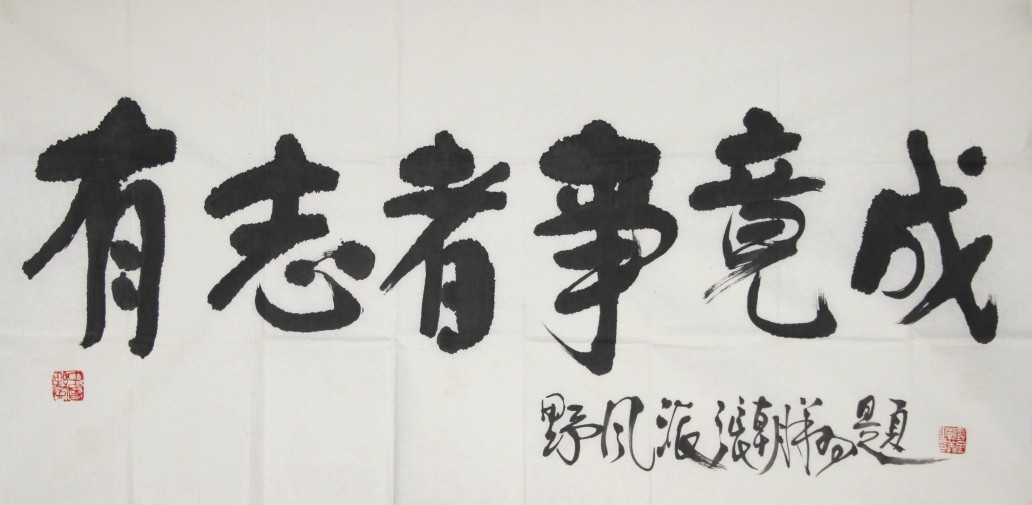 有志者事竟成
野风派张朝胜题